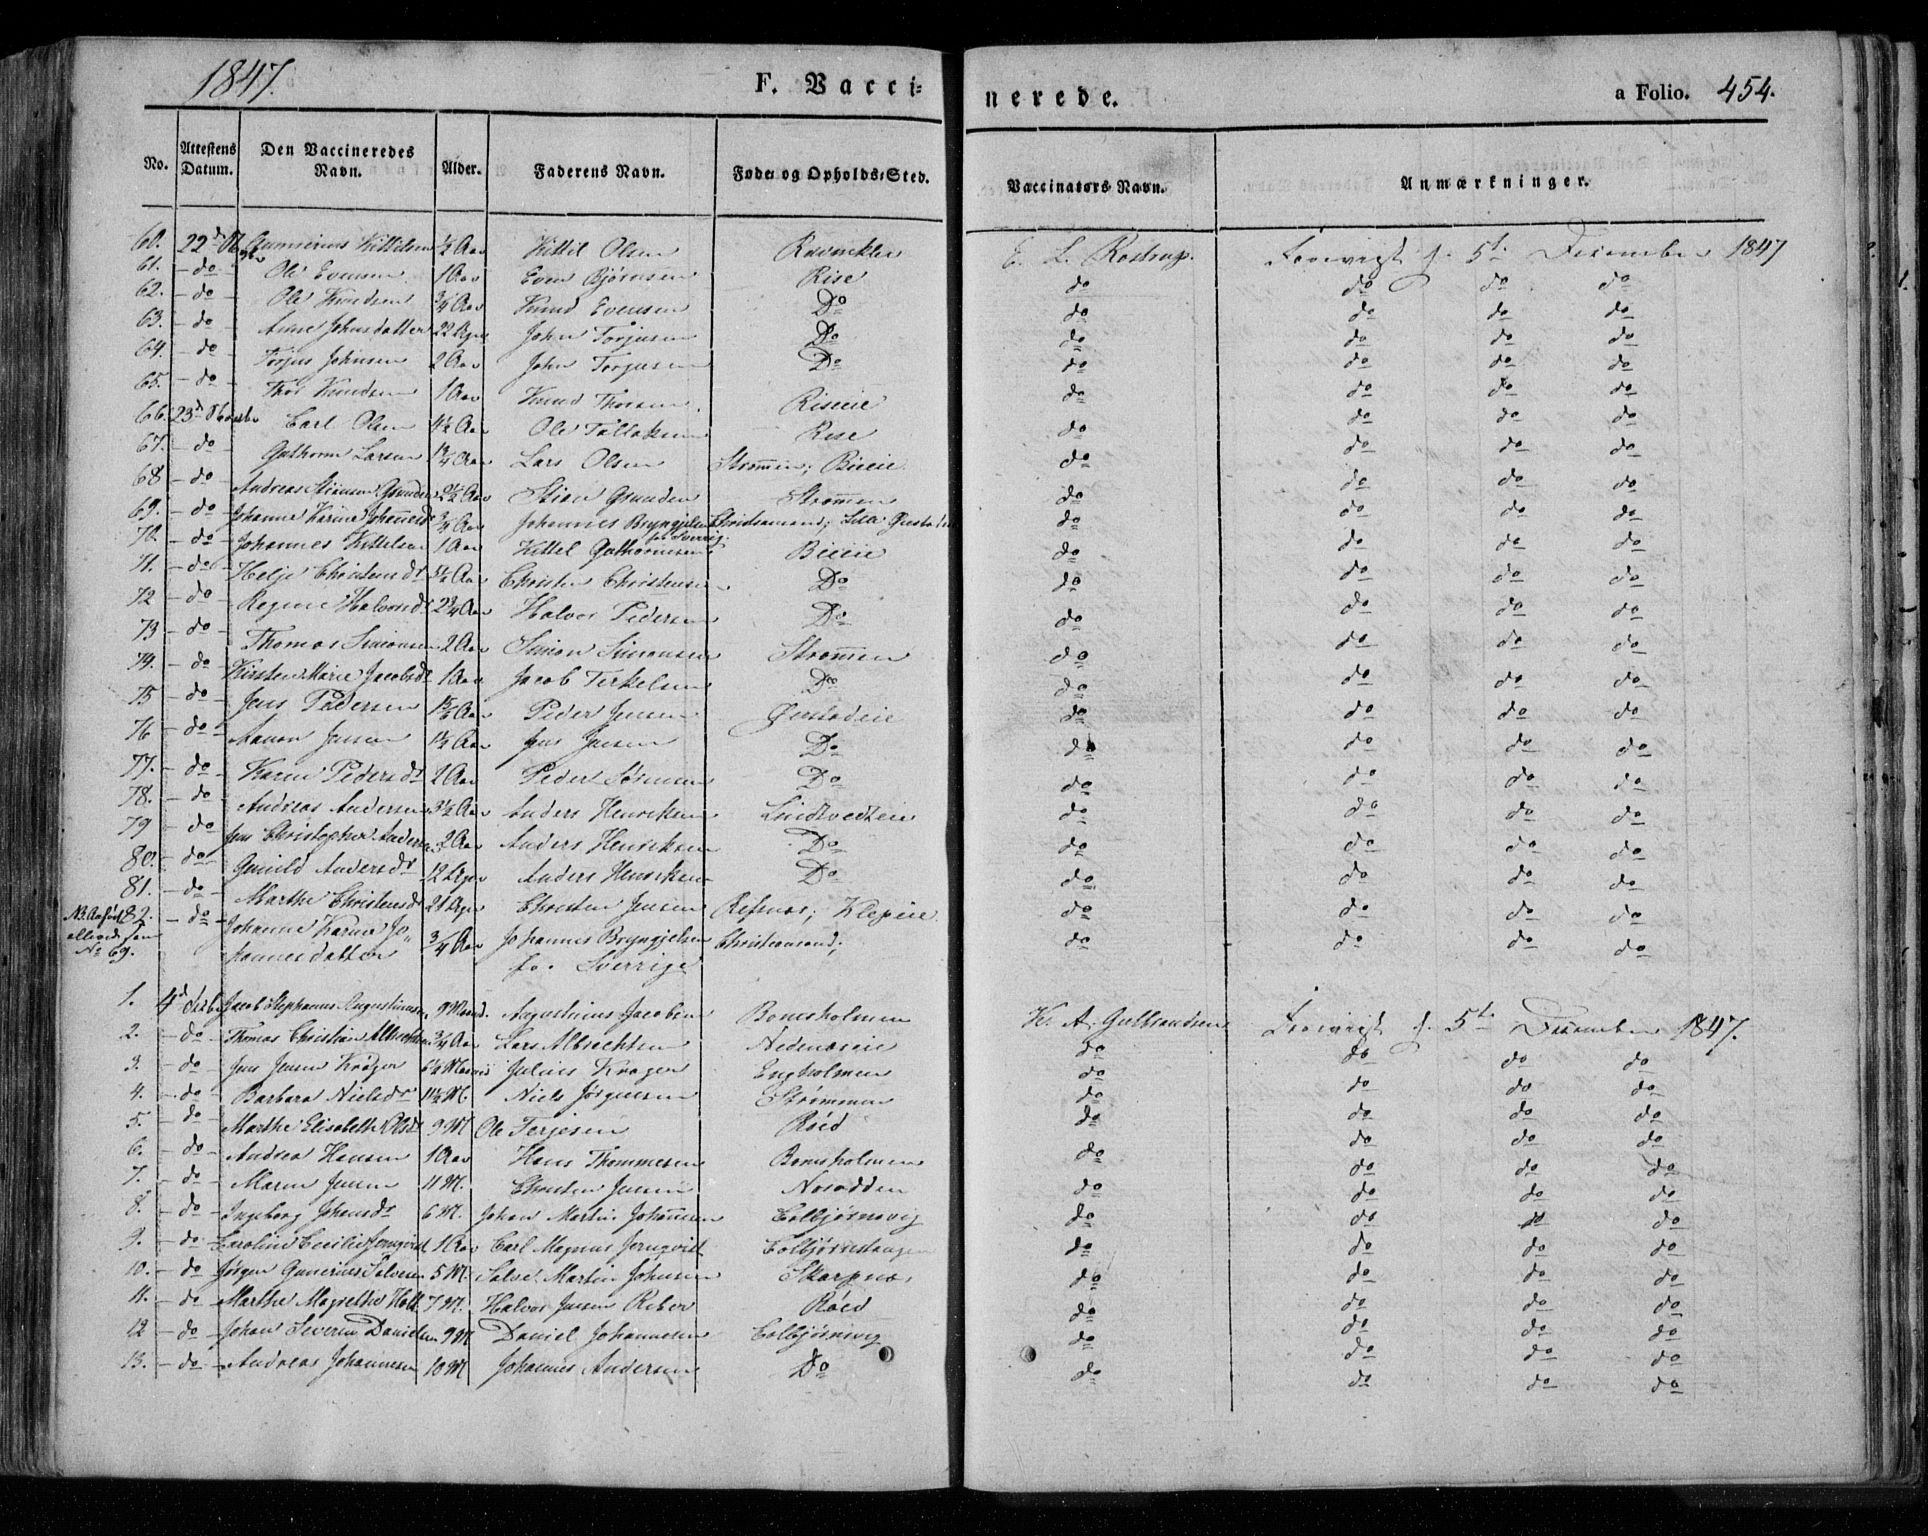 1847.
F. Vacci-
nerede.
a Folio. 454.
No. Attestens Datum. Den Vaccineredes Navn. Alder. Faderens Navn. Føde og Opholds-Sted. Vaccinators Navn. Anmærkninger.
60. 22d Gunnerius Kittilsen ½ Aar Kittil Olsen E. L. Rostrup. 5t December 1847
61. do Ole Evensen 1 Aar Even Bjørnsen Rise do do do do
62. do Ole Knudsen ¾ Aar Knud Evensen Do do do do do
63. do Anne Johnsdatter 22 Ager John Torjusen Do do do do do
64. do Torjus Johnsen 2 Aar John Torjusen Do do do do do
65. do Thor Knudsen 1 Aar Knud Thorsen Riseeie do do do do
66. 23d Carl Olsen Ole Tallaksen Rise do do do do
67. do Guthorm Larsen Lars Olsen Strømmen; Bieeie do do do do
68 do Andreas Stiansen Grunden 2½ Aar Stian Grunden Strømmen do do do do
69. do Johanne Karine Johannesd ¾ Aar Johannes Bryngjelsen fra Sverrig. Christiansand; Lille do do do do
70. do Johannes Kittelsen 1 Aar Kittel Guthormsen Bieeie do do do do
71. do Helje Christensdt Christen Christensen Do do do do do
72 do Regine Halvorsdt 2¾ Aar Halvor Pedersen Do do do do do
73 do Thomas Simonsen 2 Aar Simon Simonsen Strømmen do do do do
74. do Kirsten Marie Jacobsdt 1 Aar Jacob Terkelsen Do do do do do
75 do Jens Pedersen Peder Jensen Øiestadeie do do do do
76 do Maren Jensen 1½ Aar Jens Jensen Do do do do do
77. do Karen Pedersdt 2 Aar Peder Sørensen Do do do do do
78. do Andreas Andersen 3½ Aar Anders Henriksen Lindtvedteie do do do do
79 do Jens Christopher Andersen 2 Aar Anders Henriksen Do do do do do
80. do Gunild Andersdt 12 Ager Anders Henriksen Do do do do do
81. do Marthe Christensdt 21 Ager Christen Jensen Refsnæs; Klepeie do do do do
NB. Anført allerede No 69.
82. do Johanne Karine Jo- ¾ Aar Johannes Bryngjelsen Christiansand; do do do do
hannesdatter fr. Sverrige
1. 4d Jacob Stephanus Augustinusen 9 Maand. Augustinus Jacobsen Bomsholmen K. A. Gulbrandsen 5te December 1847.
2. do Thomas Christian Albrechtsen ¾ Aar Lars Albrechtsen Nedenæseie do do do do
3. do Jens Jensen Krøger Julius Krøger Engholmen do do do do
4. do Barbara Nielsdt 11½ M. Niels Jørgensen Strømmen do do do do
5. do Marthe Elisabeth Olsdt 9 M Ole Terjesen Røed do do do do
6. do Andrea Hansen 1 Aar Hans Thommesen Bomsholmen do do do do
7. do Maren Jensen 11 M. Christen Jensen Næsodden do do do do
8. do Ingeborg Johansdt 6 M. Johan Martin Johansen Colbjørnsvig do do do do
9. do Caroline Cecilie Jernqvist 1 Aar Carl Magnus Jernqvist Colbjørnstangen do do do do
10. do Jørgen Gunerius Salvesen 5 M. Salve Martin Johnsen Skarpnæs do do do do
11. do Marthe Magrethe Halv. 7 M. Halvor Jensen Riber Røed do do do do
12 do Johan Severin Danielsen 9 M Daniel Johannesen Colbjørnsvig do do do do
13. do Andreas Johannesen 10 M Johannes Andersen Do do do do do